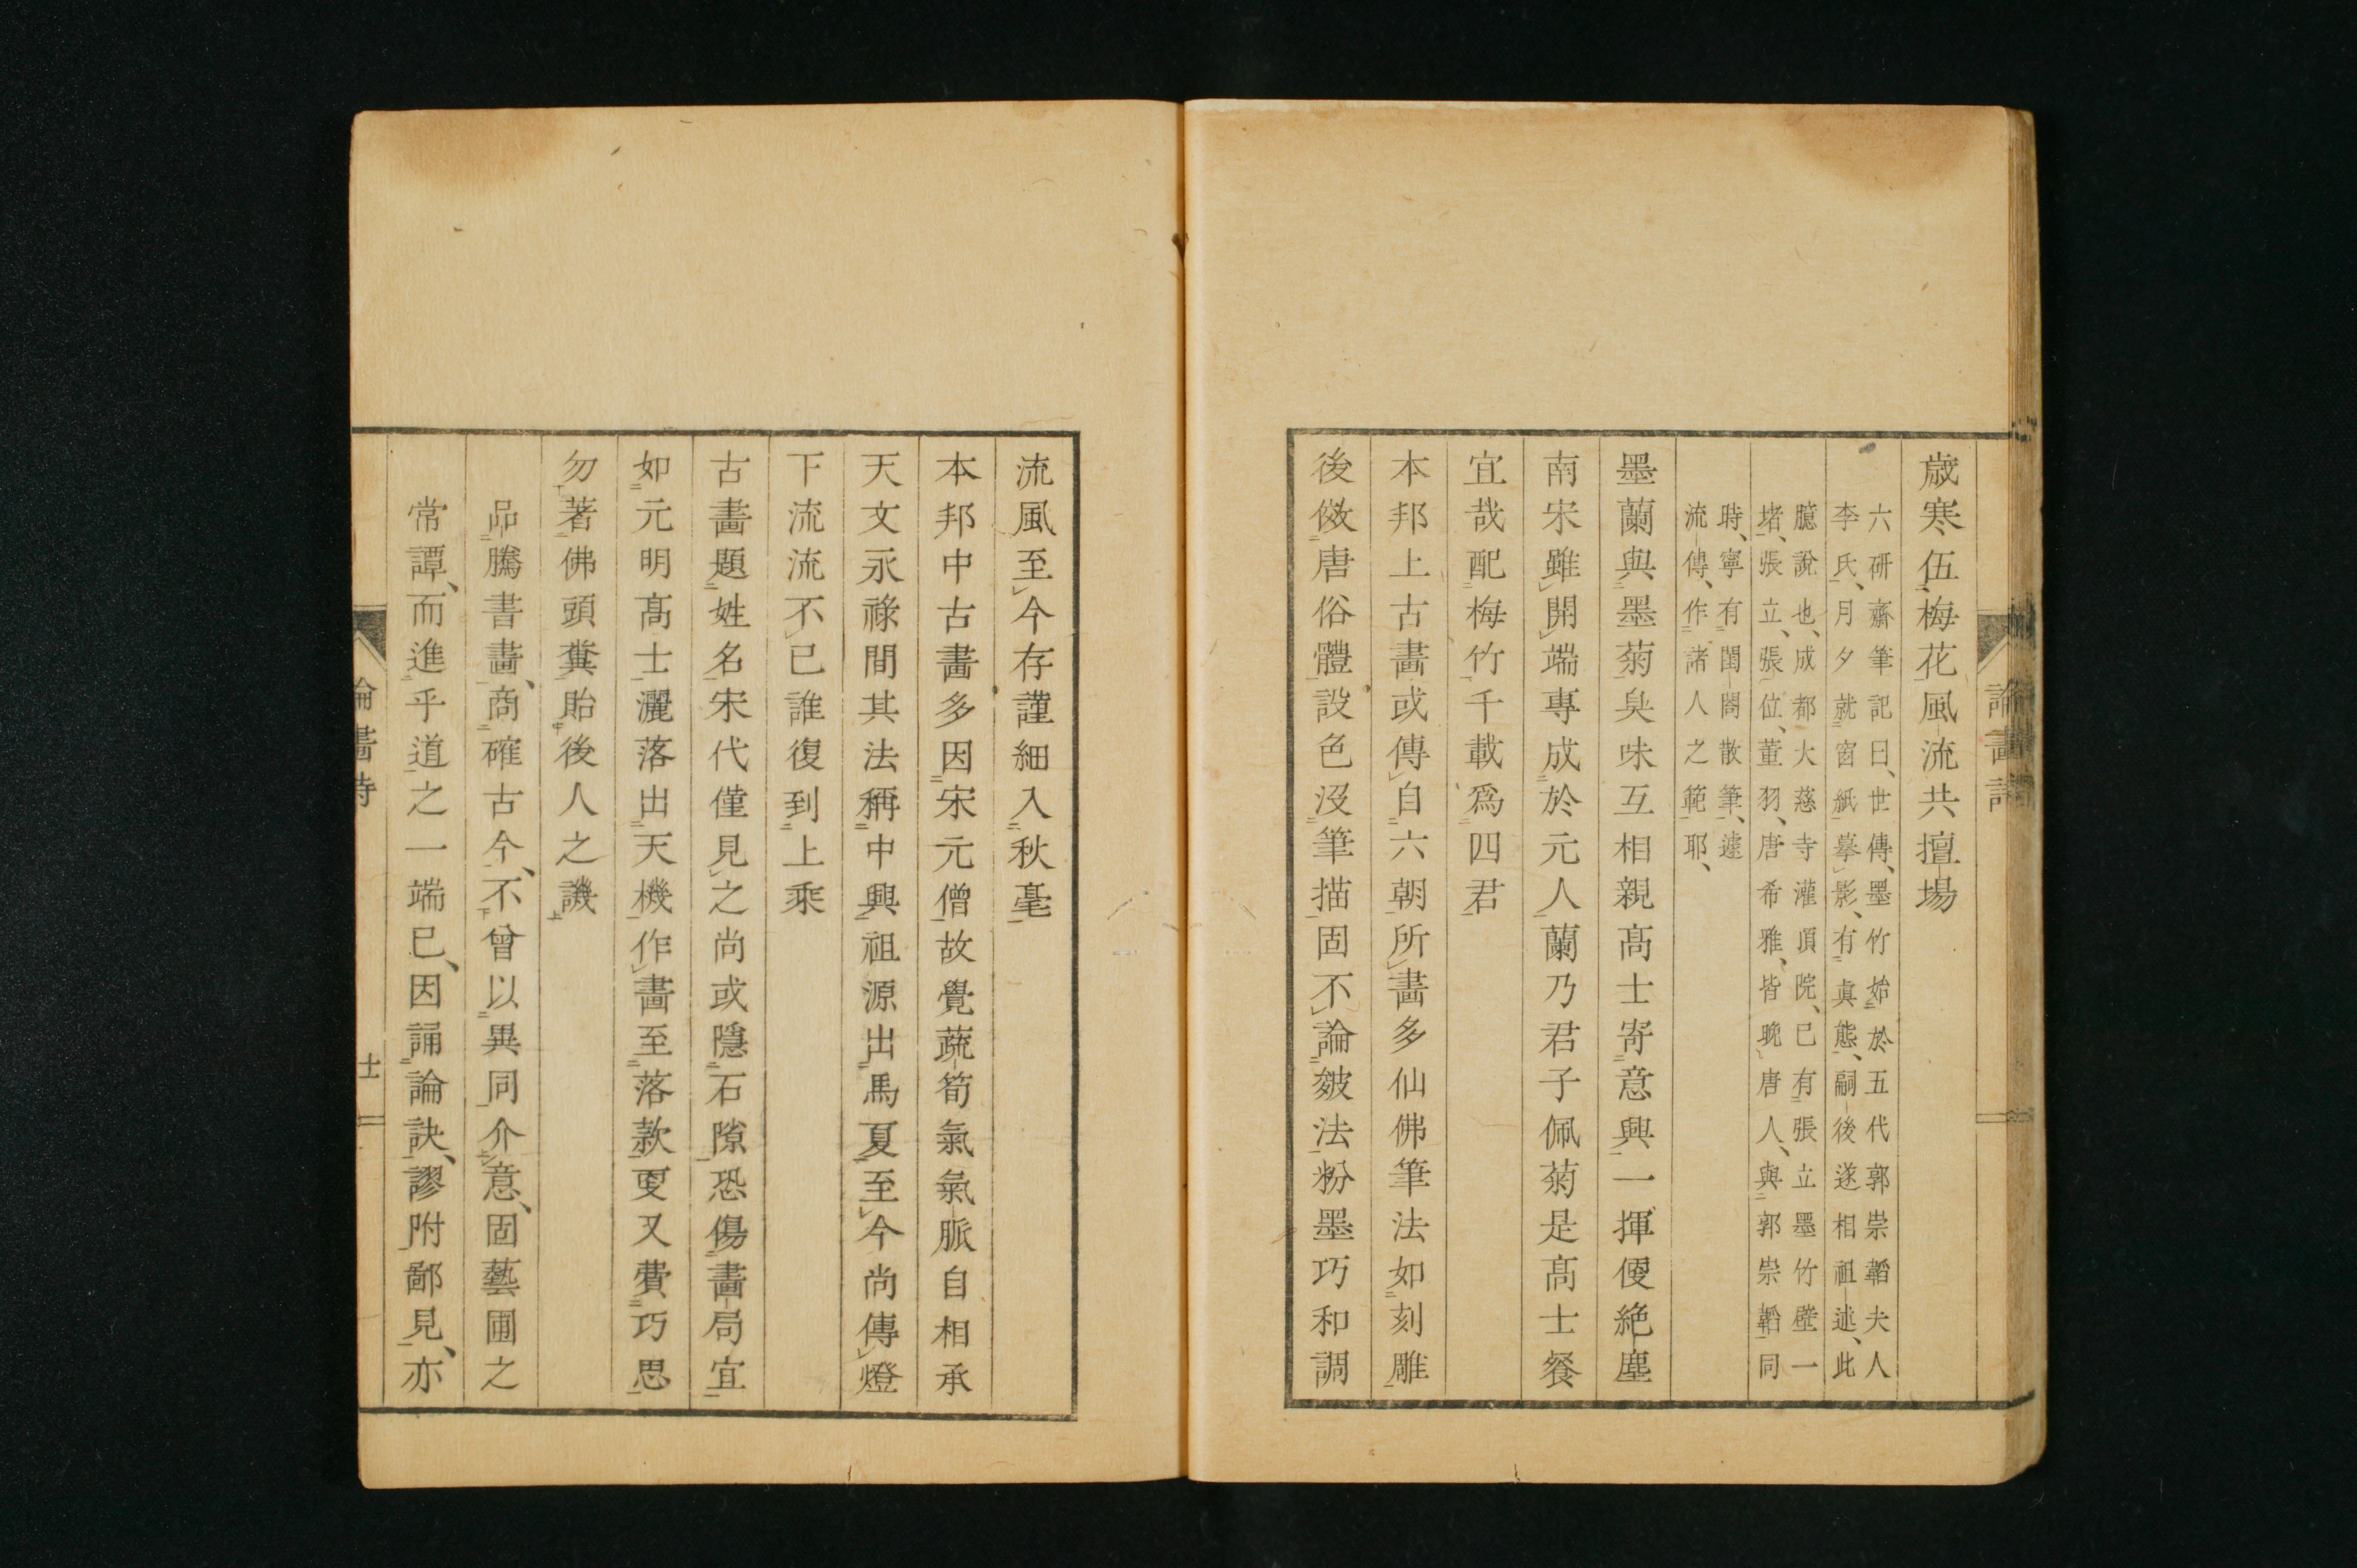 論畫詩
歳寒伍梅花風流共擅場
六研齋筆記曰、世傳、墨竹始於五代郭崇韜夫人
李氏、月夕就窗紙摹影、有眞態、嗣後遂相祖述、此
臆說也、成都大慈寺灌頂院、已有張立墨竹壁一
堵、張立、張位、董羽、唐希雅、皆晩唐人、與郭崇韜同
時、寧有閨閤散筆、遽
流傳、作諸人之範耶、
墨蘭與墨菊臭味互相親高士寄意興一揮便絶塵
南宋雖開端專成於元人蘭乃君子佩菊是高士餐
宜哉配梅竹千載爲四君
本邦上古畵或傳自六朝所畵多仙佛筆法如刻雕
後傚唐俗體設色沒筆描固不論皴法粉墨巧和調
流風至今存謹細入秋毫
本邦中古畵多因宋元僧故覺蔬筍氣氣脈自相承
天文永祿間其法稱中興祖源出馬夏至今尚傳燈
下流流不已誰復到上乘
古畵題姓名宋代僅見之尚或隱石隙恐傷畵局宜
如元明高士灑落出天機作畵至落款更又費巧思
勿著佛頭糞貽後人之譏
品騰書畵、商確古今、不曾以異同介意、固藝圃之
常譚、而進乎道之一端已、因誦論訣、謬附鄙見、亦
論畫詩
十一